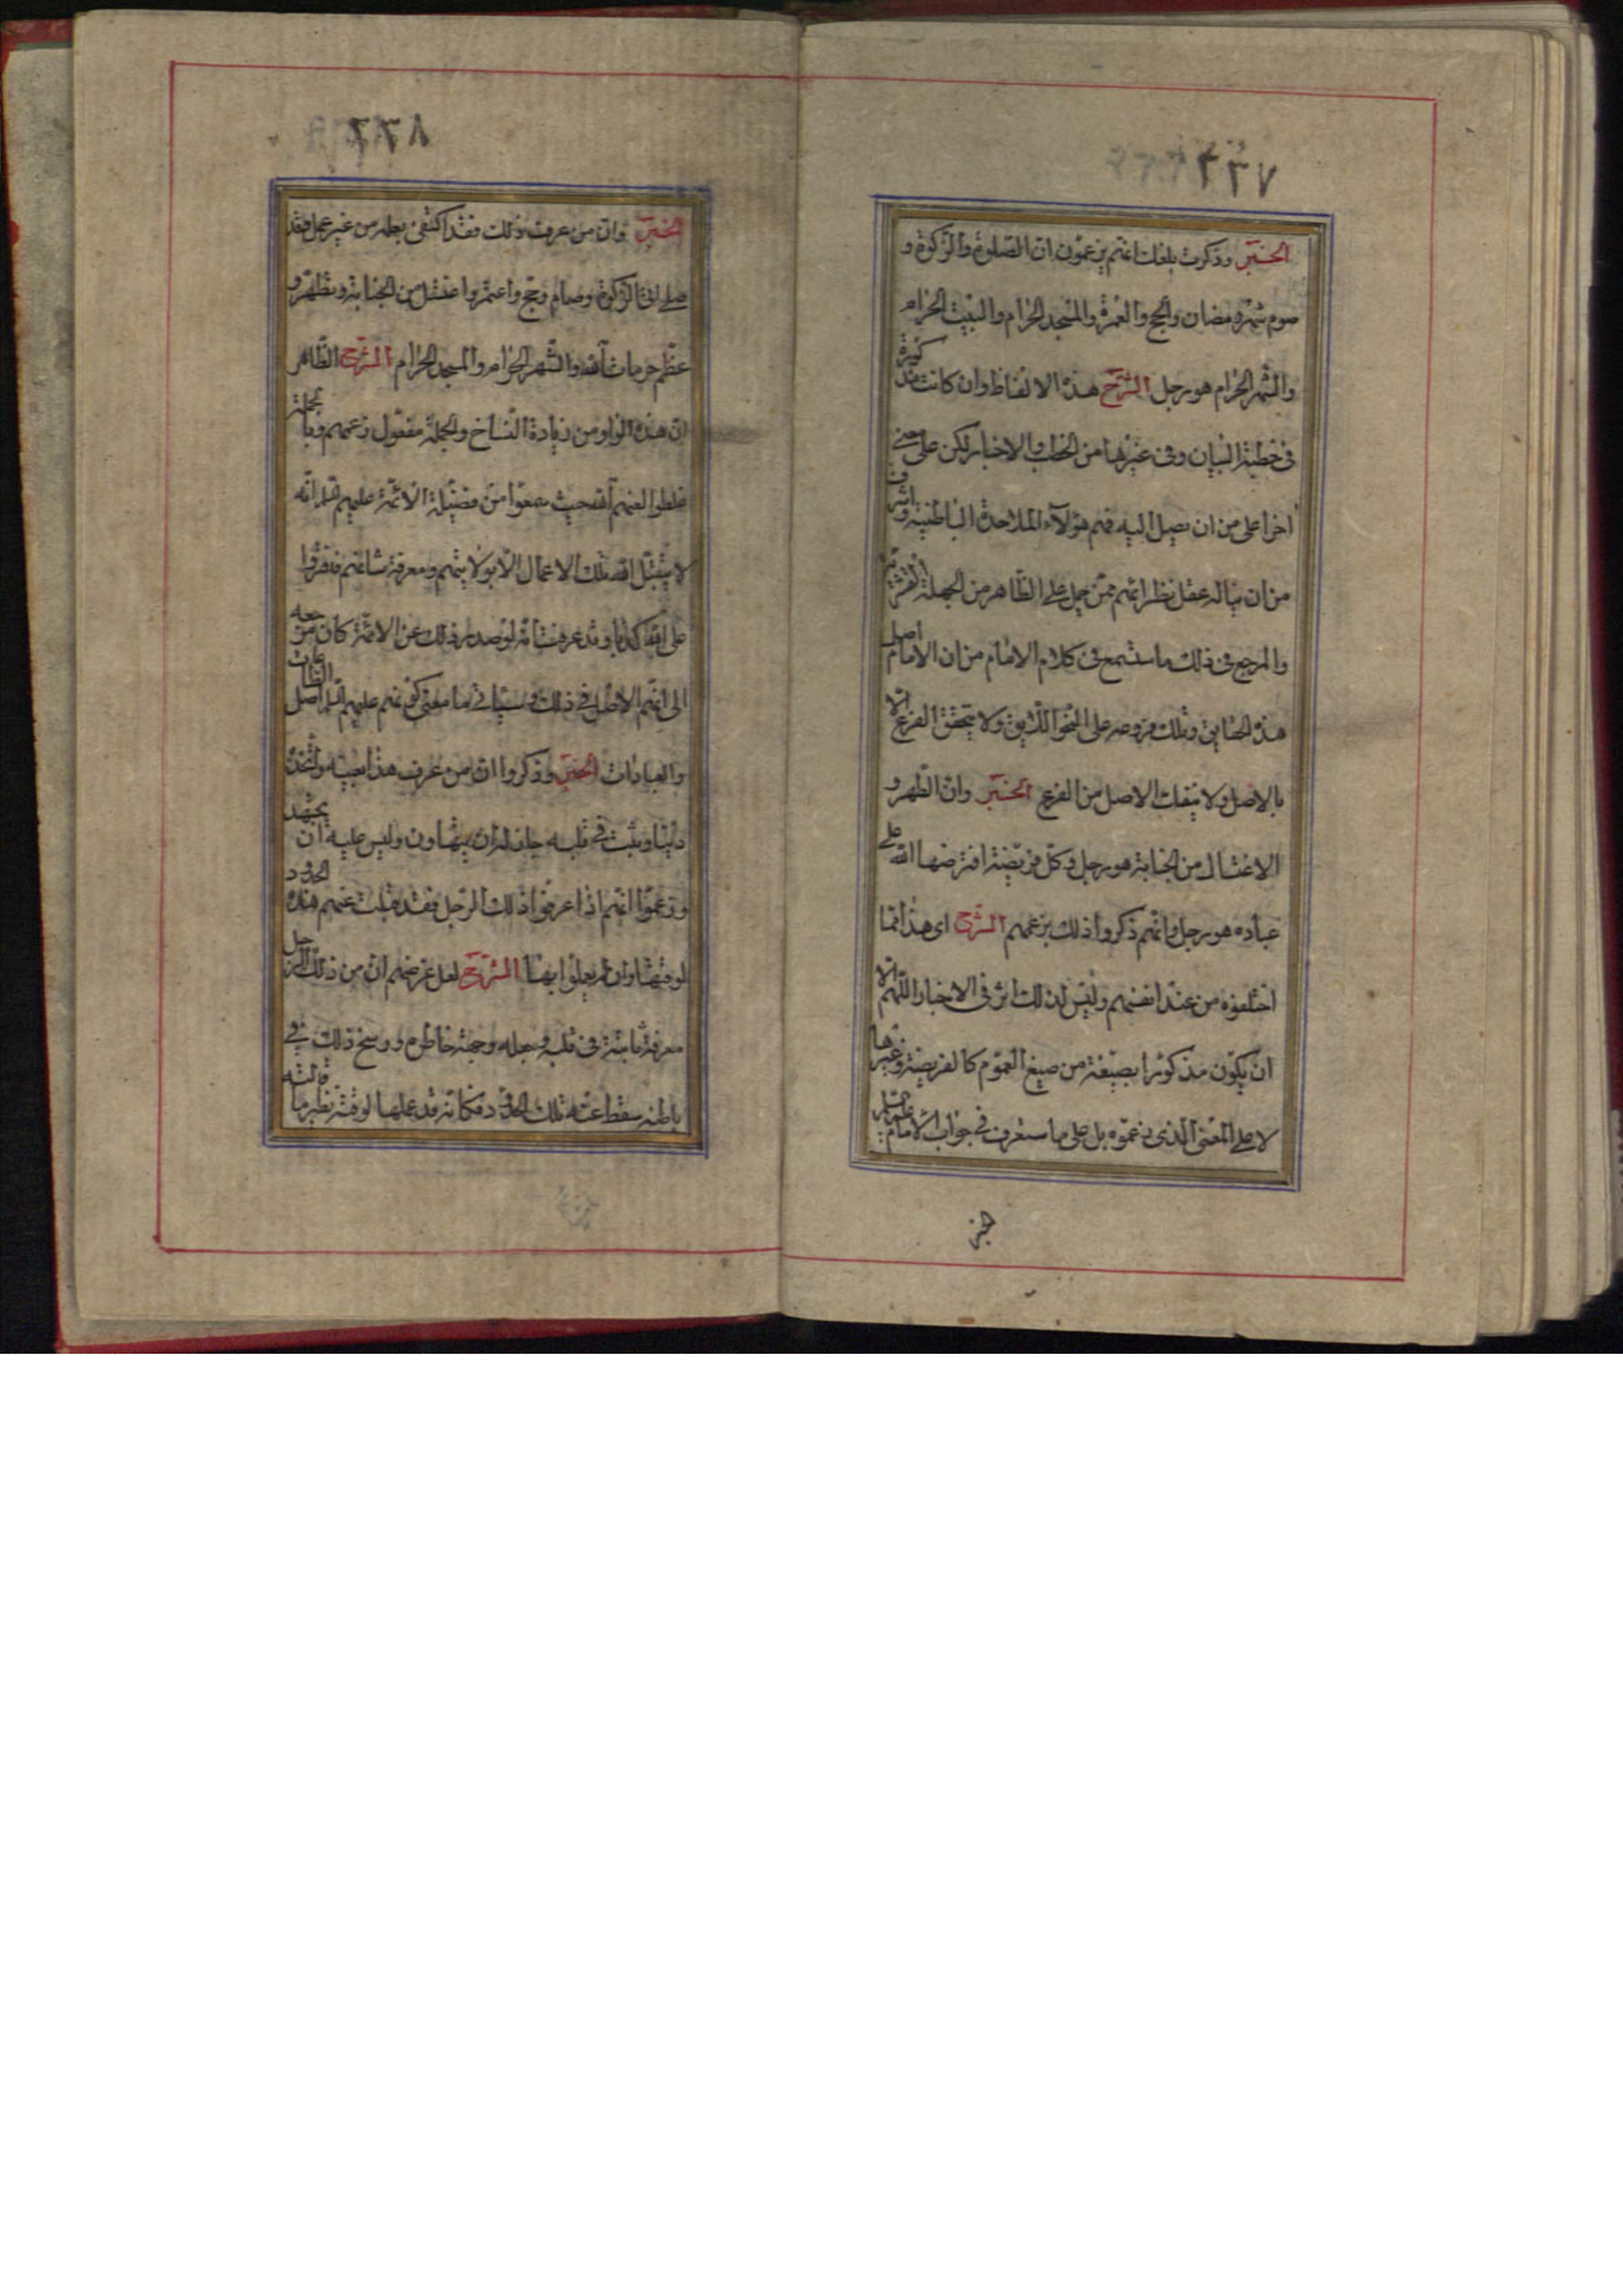 ٢٢٧
الخبر وذكرت بلغك انهم يزعمون ان الصلوة والزكوة و
صوم شهر رمضان والحج والعمرة والمسجد الحرام والبيت الحرام
والشهر الحرام هو رجل الشرح هذه الالفاظ وان كانت كثيرة
في خطبة البيان وفي غيرها من الخطب والاخبار لكن على معنى
اخر اعلى من ان يصل اليه فهم هؤلاء الملاحدة الباطنية واشرف
من ان يناله عقل نظرائهم ممن حمل على الظاهر من الجهلة القشرية
والمرجع في ذلك ما ستسمع في كلام الامام من ان الامام اصل
هذه الحقايق وتلك فروعه على النحو اللايق ولا يتحقق الفرع الا
بالاصل ولا ينفك الاصل من الفرع الخبر وان الطهر و
الاغتسال من الجنابة هو رجل وكل فريضة افترضها الله على
عباده هو رجل وانهم ذكروا ذلك بزعمهم الشرح اى هذا انما
اختلقوه من عند انفسهم وليس لذلك اثر في الاخبار اللهم الا
ان يكون مذكورا بصيغة من صيغ العموم كالفريضة وغيرها
لا على المعنى الذي زعموه بل على ما ستعرف في جواب الامام عليه السلم
٢٢٨
الخبر وان من عرف ذلك فقد اكتفى بعلمه من غير عمل فقد
صلى واتى الزكوة وصام وحج واعتمر واغتسل من الجنابة وتطهر و
عظم حرمات الله والشهر الحرام والمسجد الحرام الشرح الظاهر
ان هذه الواو من زيادة النساخ والجملة مفعول زعمهم وبالجملة
غلطوا لعنهم الله حيث سمعوا من فضيلة الائمة عليهم السلم انه
لا يتقبل الله تلك الاعمال الا بولايتهم ومعرفة شانهم فافتروا
على الله كذبا وقد عرفت انه لو صدر ذلك عن الائمة كان مرجعه
الى انهم الاصل في ذلك وسيأتي ما معنى كونهم عليهم السلم اصل الطاعات
والعبادات الخبر وذكروا ان من عرف هذا بعينه واتخذه
دينا وثبت في قلبه جاز له ان يتهاون وليس عليه ان يجتهد
وزعموا انهم اذا عرفوا ذلك الرجل فقد قبلت عنهم هذه الحدود
لوقتها وان لم يعملوا بها الشرح لعل غرضهم ان من ذلك الرجل
معرفة ثابتة في قلبه وجعله وجهة خاطره ورسخ ذلك في
باطنه سقط عنه تلك الحدود فكانه قد عملها لوقته نظير ما قالته